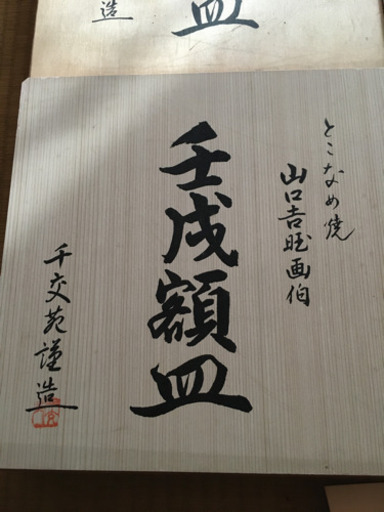 とこなめ焼
山口吉旺画伯
壬戌額皿
千交苑謹造
皿
造